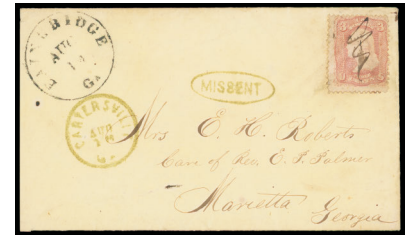 BRIDGE
AUG
14
Ga
MISSENT
CARTERSVILLE
AUG
16
Ga
Mrs E. H. Roberts
Care of Rev. E. P. Palmer
Marietta
Georgia